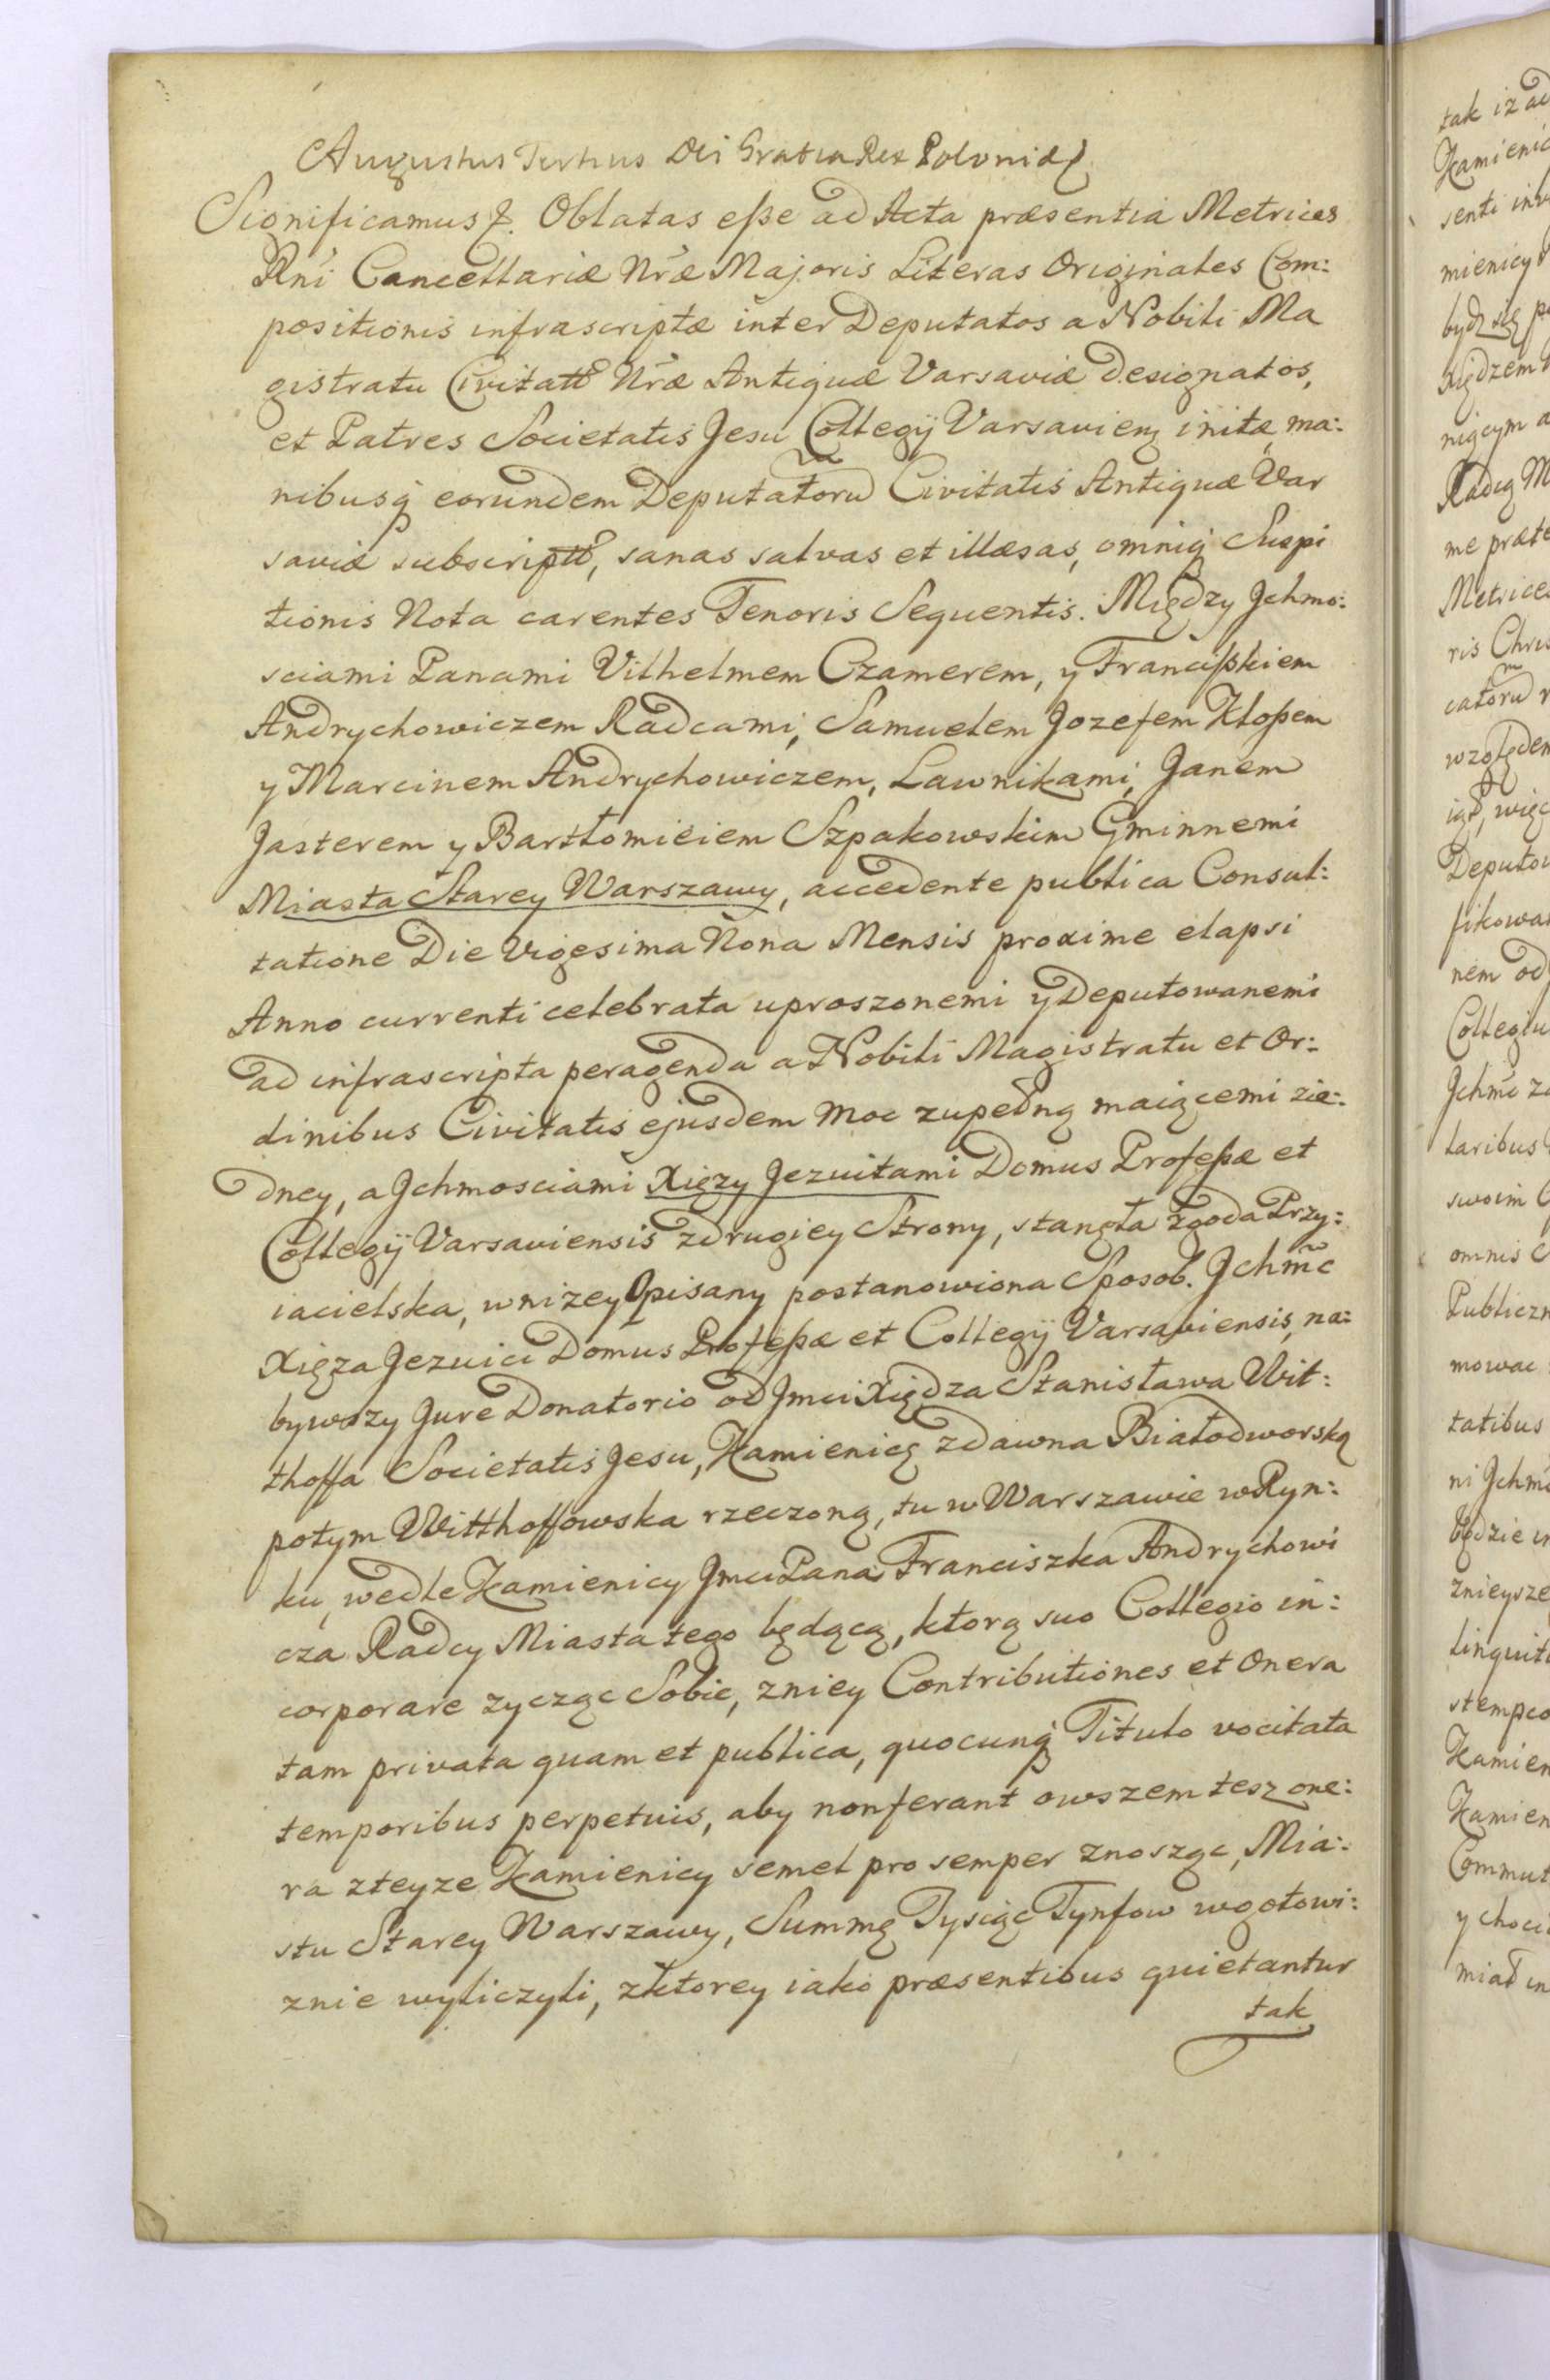 Augustus Tertius Dei Gratia Rex Poloniæ
Significamus &. Oblatas eße ad Acta præsentia Metrices
Rñi Cancellariæ Nr̃æ Majoris Literas Originales Com:
positionis infrascriptæ inter Deputatos a Nobili Ma
gistratu Civitatt Nr̃æ Antiquæ Varsaviæ designatos,
et Patres Societatis Jesu Collegÿ Varsavienȝ initæ, ma:
nibusq̨ eorundem Deputatorũ Civitatis Antiquæ Var
saviæ subscriptt, sanas salvas et illæsas, omniq̨ Suspi
tionis Nota carentes Tenoris Sequentis. Między Jchmo:
sciami Panami Vilhelmem Czamerem, y Francißkiem
Andrychowiczem Radcami, Samuelem Jozefem Kloßem
y Marcinem Andrychowiczem, Lawnikami, Janem
Jasterem y Bartłomieiem Szpakowskim Gminnemi
Miasta Starey Warszawy, accedente publica Consul:
tatione Die Vigesima Nona Mensis proxime elapsi
Anno currenti celebrata uproszonemi y Deputowanemi
ad infrascripta peragenda a Nobili Magistratu et Or:
dinibus Civitatis ejusdem moc zupełną maiącemi zie:
dney, a Jchmosciami Xięzy Jezuitami Domus Profeßæ et
Collegÿ Varsaviensis zdrugiey Strony, stanęła zgoda Przy:
iacielska, wnizey Opisany postanowiona Sposob. Jchm̃c
Xięza Jezuici Domus Profeßæ et Collegÿ Varsaviensis, na:
bywszy Jure Donatorio od Jmci Xiędza Stanisława Wit:
thoffa Societatis Jesu, Kamienicę zdawna Białodworską
potym Witthoffowska rzeczoną, tu w Warszawie w Ryn:
ku, wedle Kamienicy Jmci Pana Franciszka Andrychowi
cza Radcy Miasta tego będącą, ktorą suo Collegio in:
corporare zycząc Sobie, zniey Contributiones et Onera
tam privata quam et publica, quocunq̨ Titulo vocitata
temporibus perpetuis, aby nonferant owszem tesz one:
ra zteyze Kamienicy semel pro semper znosząc, Mia:
stu Starey Warszawy, Summę Tysiąc Tynfow wgotowi:
znie wyliczyli, zktorey iako præsentibus quietantur
tak
tak iz
Kamienic
senti
mienicy
bydz się
Xiędzem
Radcą M
me præte
Metrices
ris
wzolędem
Deputow
fikowa
nem od
Collegiu
Jchm̃c
taribus
swoim
omnis
Publiczn
mowac
tatibus
ni Jchm̃c
będzie
znieysze
linquit
stempco
Kamien
Kamien
Commut
y choci
miał